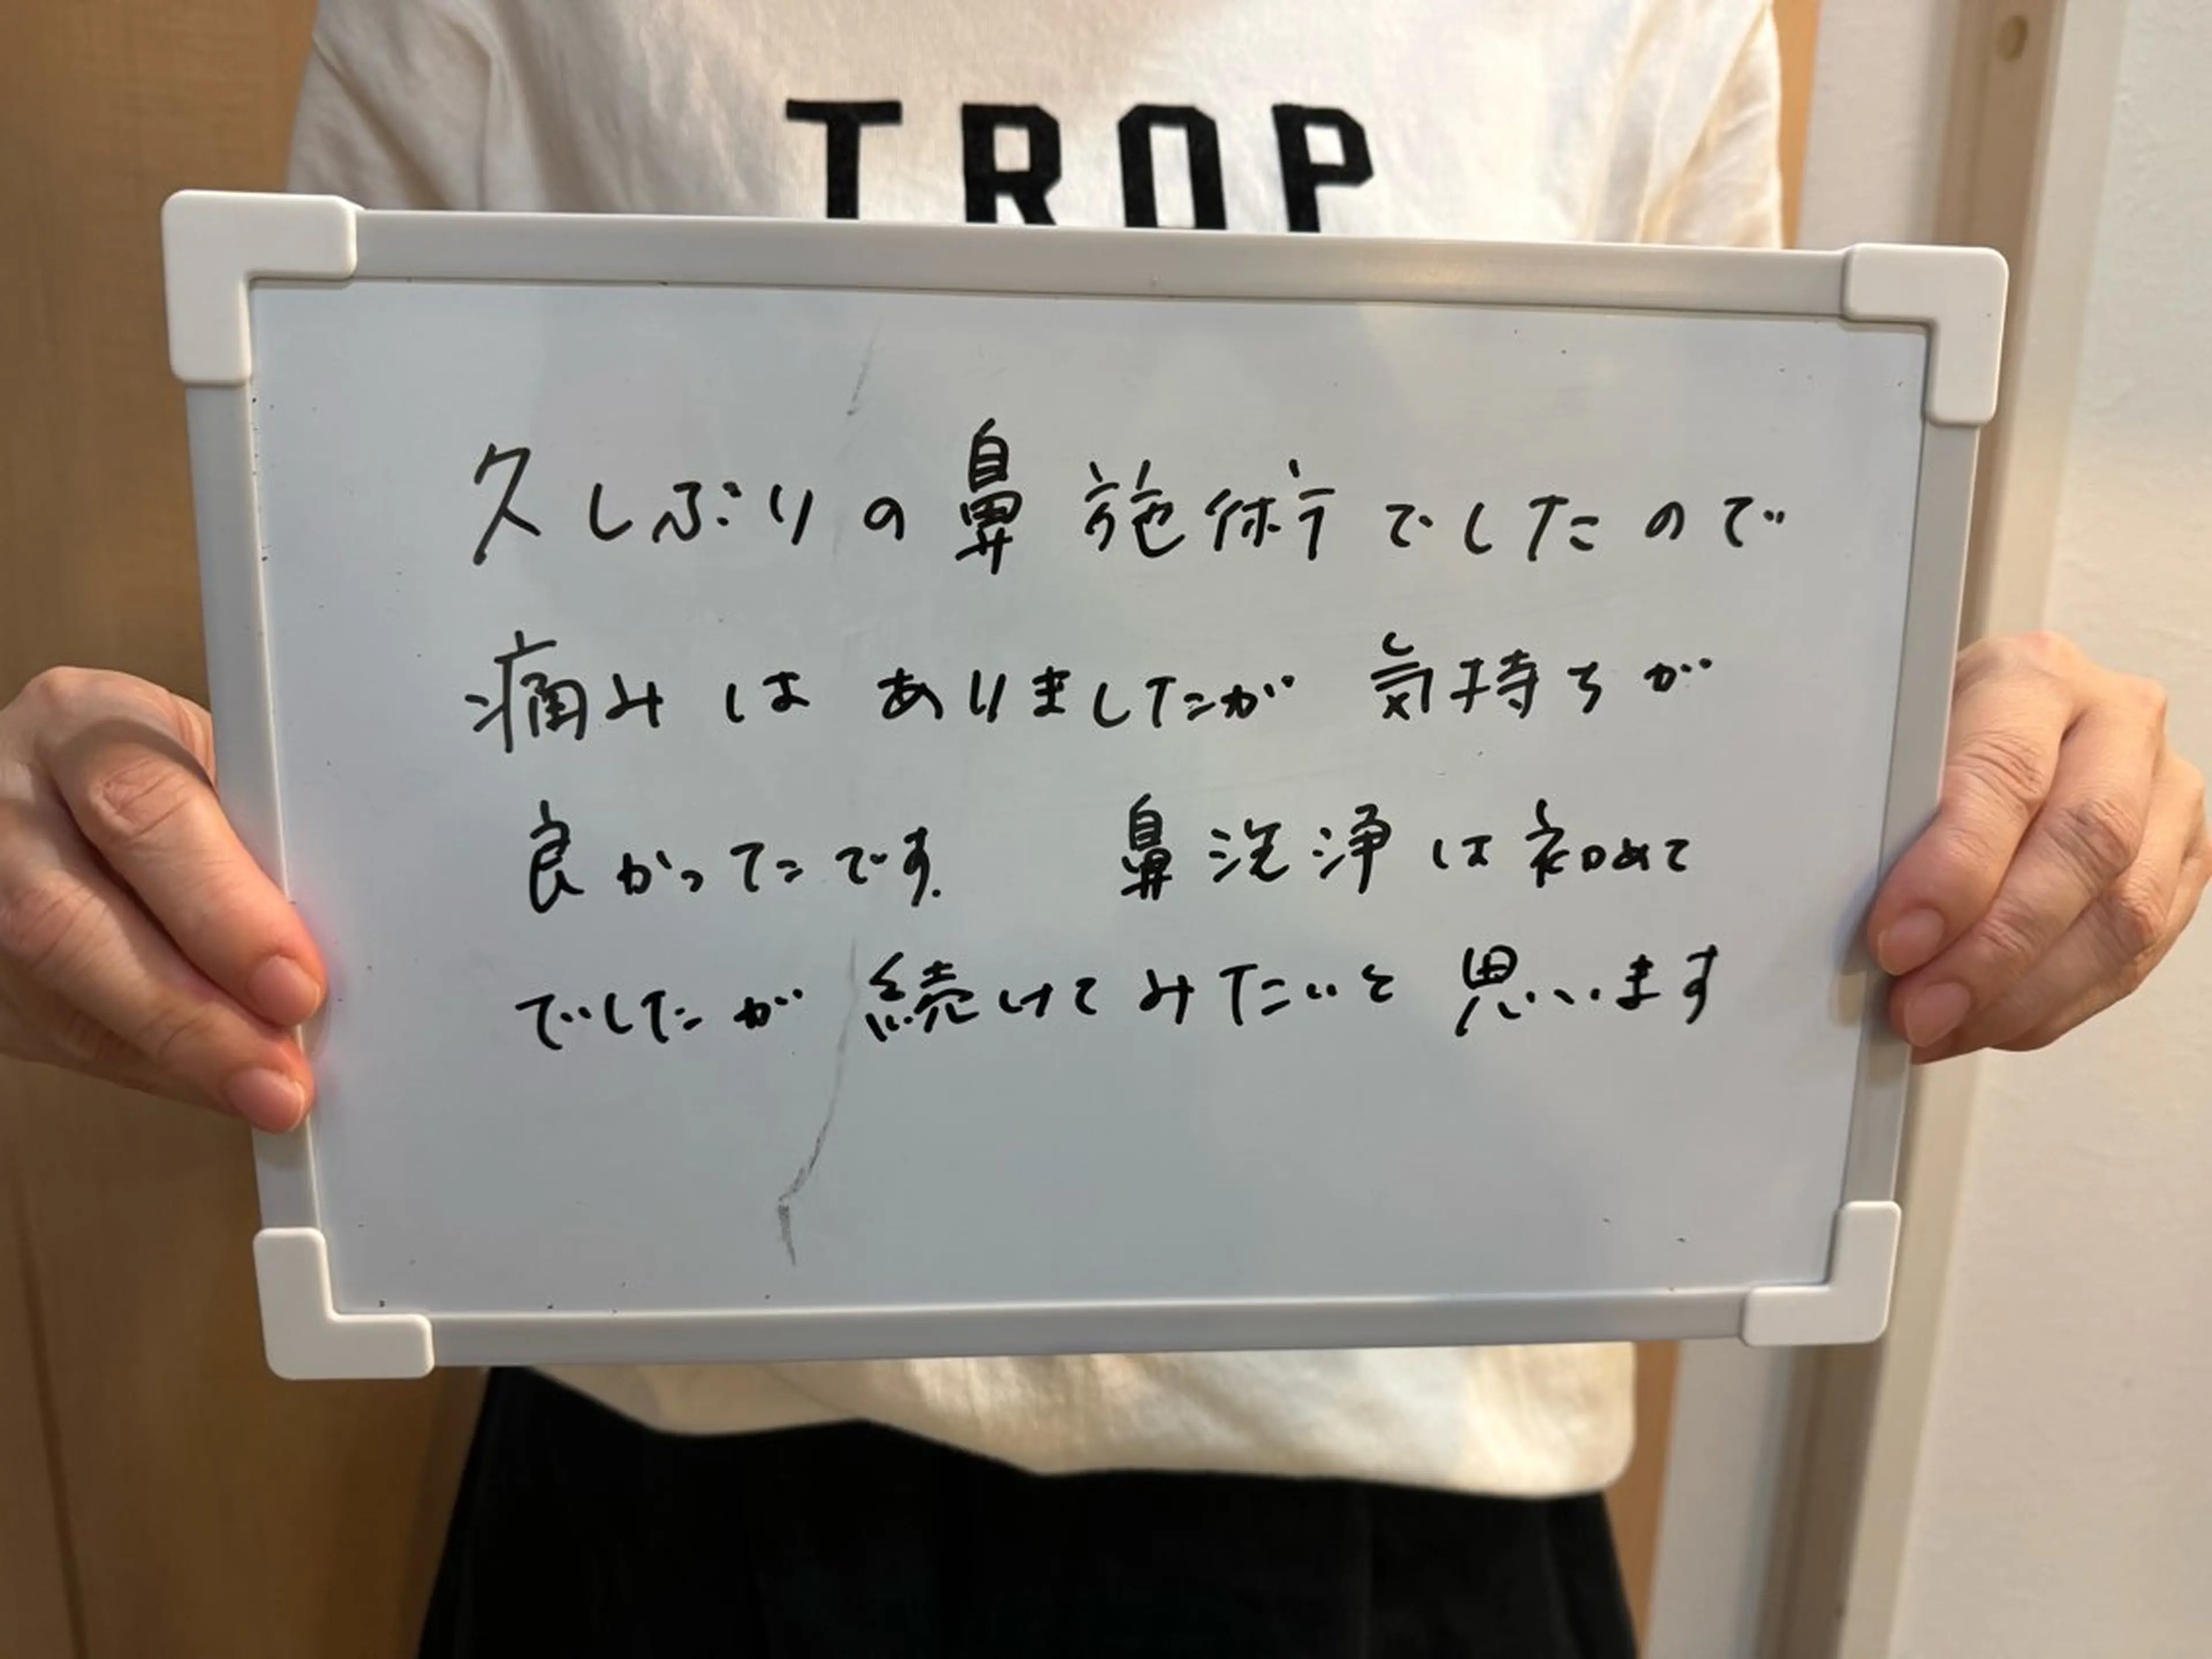 TROP
久しぶりの鼻施術でしたので
痛みはありましたが気持ちが
良かったです. 鼻洗浄は初めて
でしたが続けてみたいと思います